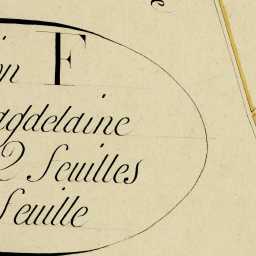 on F
agdelaine
2 feuilles
feuille